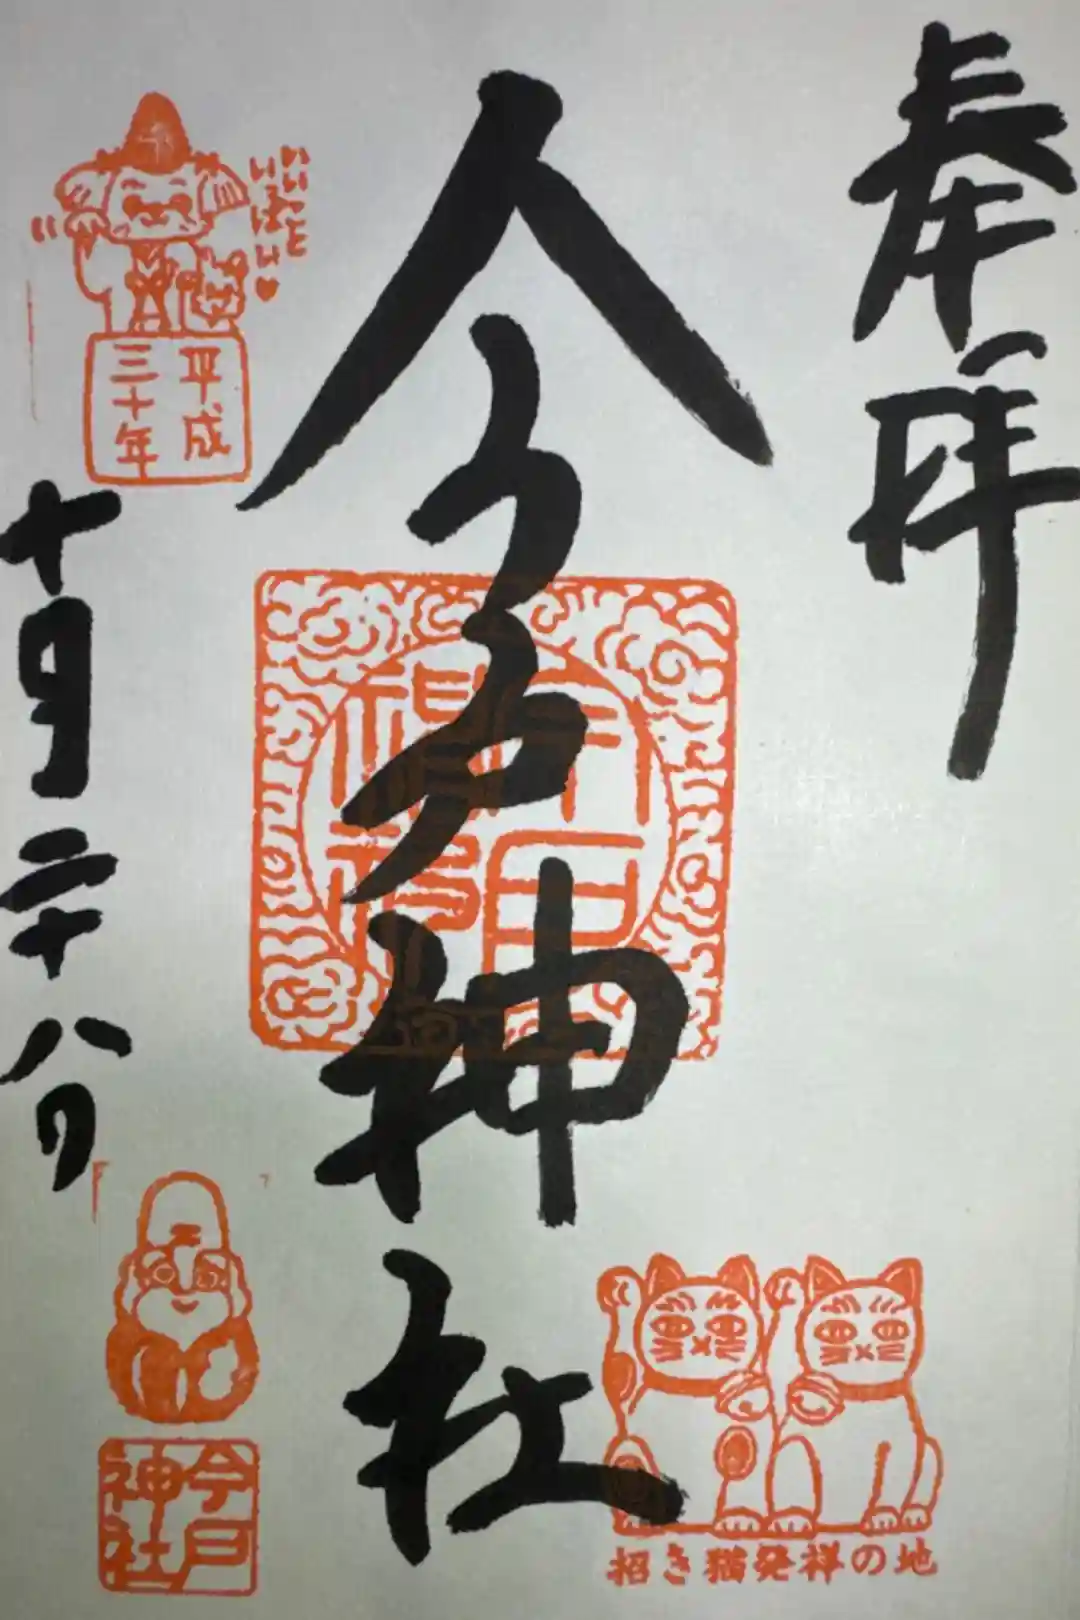 奉拝
今戸神社
いいこと
いっぱい♥
平成
三十年
十月二十八日
今戸
神社
今戸
神社
招き猫発祥の地